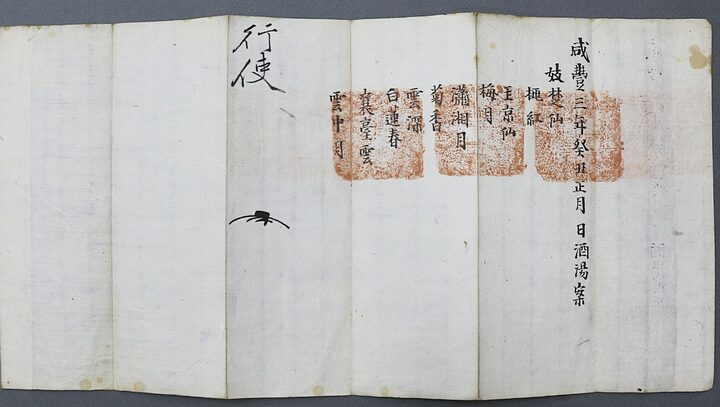 咸豐三年癸丑正月 日酒湯案
妓楚仙
桃紅
王京仙
梅月
瀟湘月
菊香
雲深
白蓮春
襄臺雲
雲中月
行使